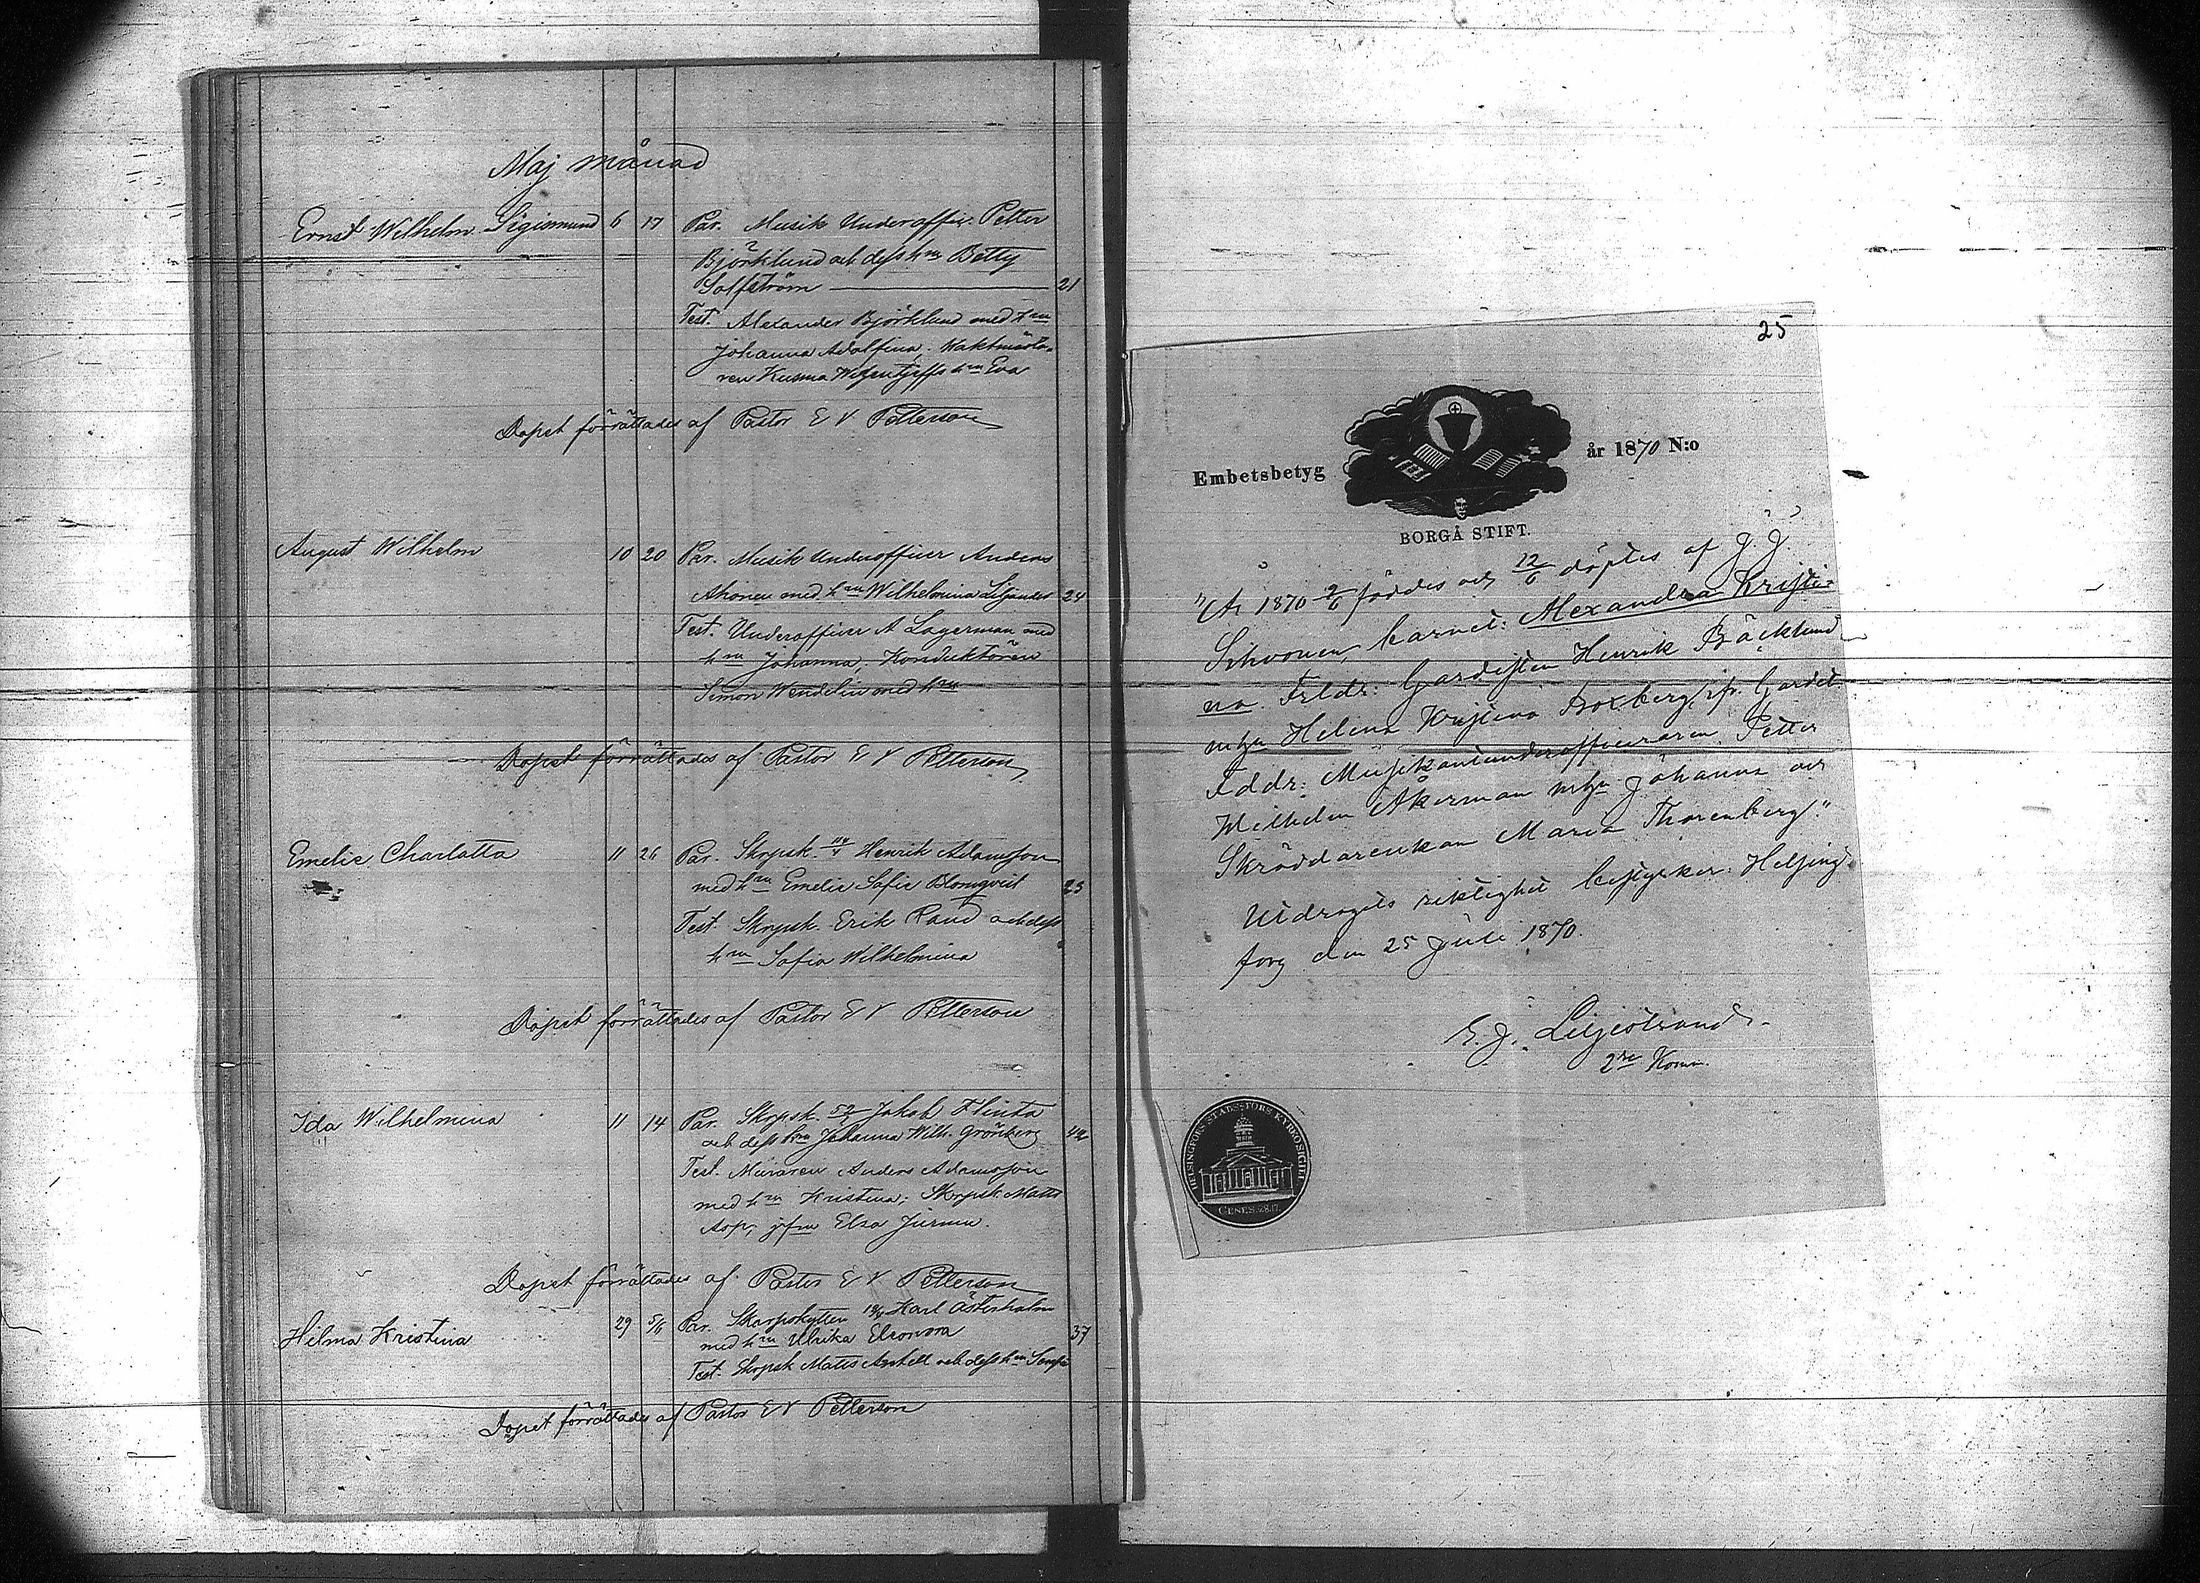 Maj månad
Ernst Wilhelm Sigismund 6 17 Par. Musik Underoffic. Petter
Björklund och dess hru Betty
Solfström 21
Test. Alexander Björklund med hru
Johanna Adolfina; Waktmästa-
ren Kusma hru Eva
Dopet förrättades af Pastor E V Petterson
August Wilhelm 10 20 Par. Musik Underofficer Anders
Ahonen med hru Wilhelmina Liljander 24
Test. Underofficer A Lagerman med
hru Johanna, Konduktören
Simon Wendelin med hru
Dopet förrättades af Pastor E V Petterson
Emelie Charlotta 11 26 Par. Skrpsk. Henrik Adamsson
med hru Emelie Sofie Blomqvist 23
Test. Skrpsk. Erik Rand och dess
hru Sofia Wilhelmina
Dopet förrättades af Pastor E V Petterson
Ida Wilhelmina 11 14 Par. Skrpsk. Jakob Flinta
och dess hru Johanna Wilh. Grönberg
Test. Muraren Anders Adamsson
med hru Kristina; Skrpsk. Matts
Asp; jfru Elsa
Dopet förrättades af Pastor E V Petterson
Hilma Kristina 29 5/6 Par. Skarpskytten Karl Österholm
med hru Ulrika Eleonora 37
Test. Skrpsk Matts och dess hru
Dopet förrättades af Pastor E V Petterson
25
Embetsbetyg år 1870 N:o
BORGÅ STIFT.
"År 1870 2/6 föddes och 12/6 döptes af J. J.
barnet: Alexandra Kristi-
na. Frldr: Gardisten Henrik Bäcklund
mhu Helena Kristina Boxberg, ifr. Gardet
Fddr: Musikantunderofficeraren Petter
Wilhelm Åkerman mhu Johanna och
Skräddarenkan Maria Thorenberg."
Utdragets riktighet bestyrker: Helsing-
fors den 25 Juli 1870.
E. J. Liljestrand
2re Komm.
HELSINGFORS STADSFÖRS. KYRKO SIGILL
GENES.28.17.